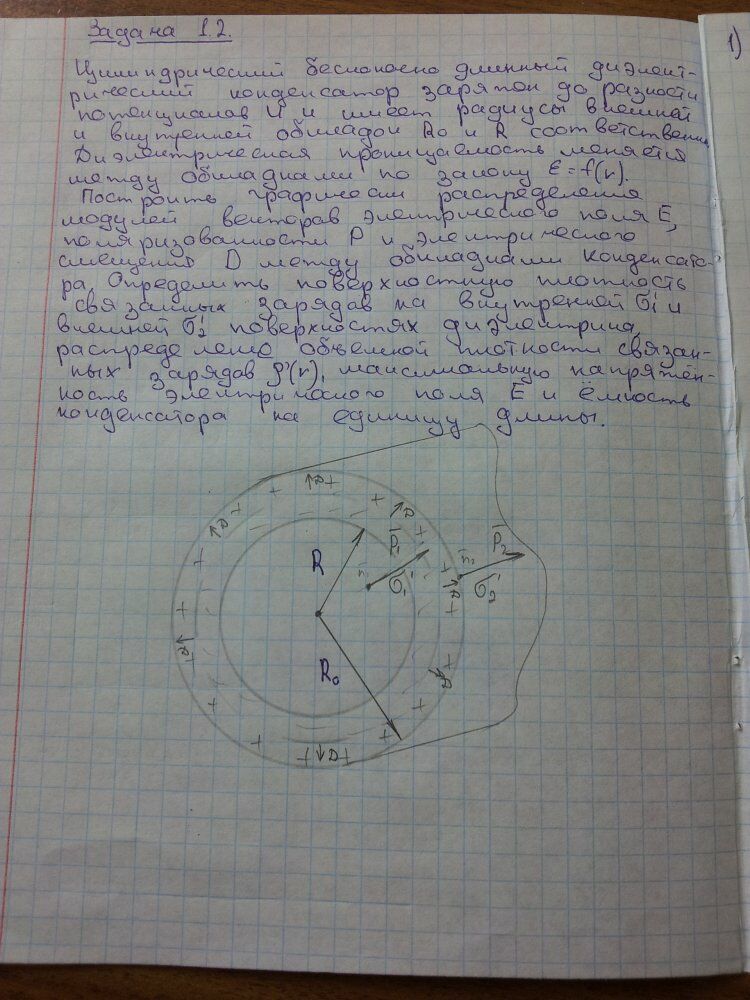 Задача 1.2.
1)
Цилиндрический бесконечно длинный диэлект-
рический конденсатор заряжен до разности
потенциалов U и имеет радиусы внешней
и внутренней обкладой R₀ и R соответственно
Диэлектрическая проницаемость меняется
между обкладками по закону ε = f(r).
Построить графически распределения
модулей векторов электрического поля E,
поляризованности P и электрического
смещения D между обкладками конденсато-
ра. Определить поверхностную плотность
связанных зарядов на внутренней σ₁' и
внешней σ₂' поверхностях диэлектрика,
распределение объёмной плотности связан-
ных зарядов ρ'(r), максимальную напряжён-
ность электрического поля E и ёмкость
конденсатора на единицу длины.
R
R₀
P₁
n₁
σ₁'
P₂
n₂
σ₂'